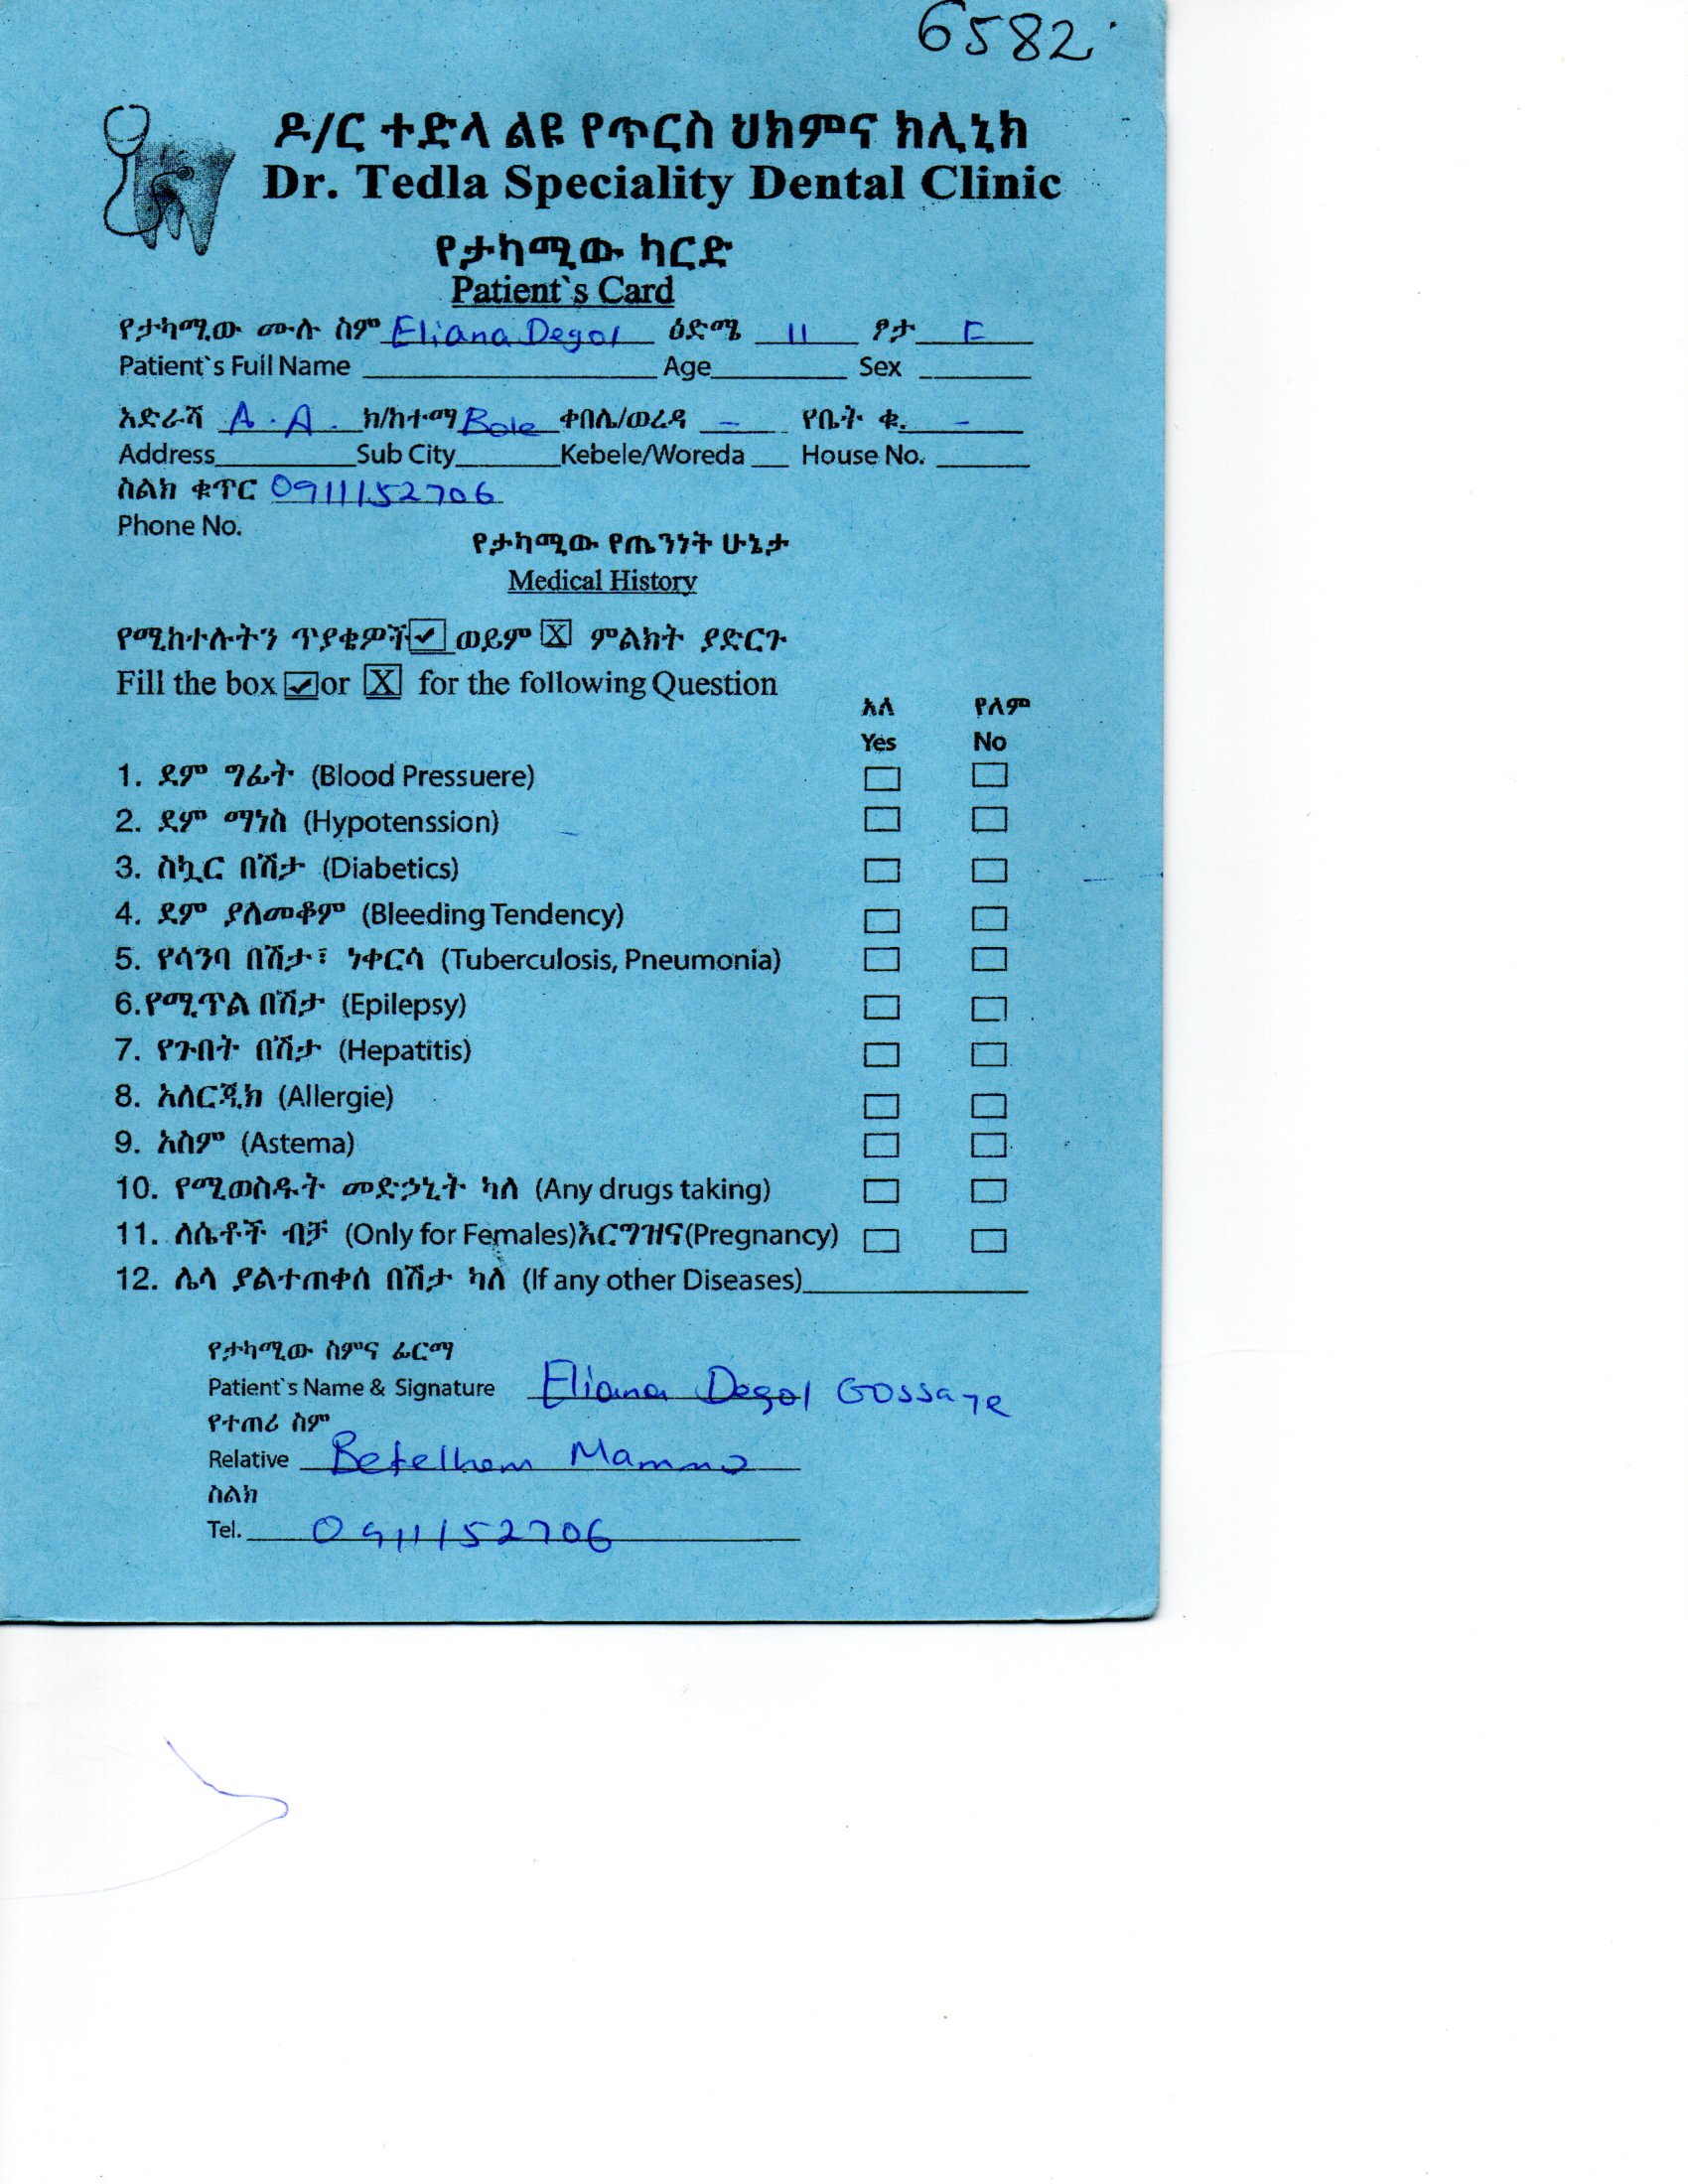 6582
ዶ/ር ተድላ ልዩ የጥርስ ህክምና ክሊኒክ
Dr. Tedla Speciality Dental Clinic
የታካሚው ካርድ
Patient`s Card
የታካሚው ሙሉ ስም Eliana Degol ዕድሜ 11 ፆታ F
Patient`s Full Name Age Sex
አድራሻ A.A. ክ/ከተማ Bole ቀበሌ/ወረዳ - የቤት ቁ. -
Address Sub City Kebele/Woreda House No.
ስልክ ቁጥር 0911152706
Phone No.
የታካሚው የጤንነት ሁኔታ
Medical History
የሚከተሉትን ጥያቄዎች ✓ ወይም X ምልክት ያድርጉ
Fill the box ✓ or X for the following Question
አለ የለም
Yes No
1. ደም ግፊት (Blood Pressuere)
2. ደም ማነስ (Hypotenssion)
3. ስኳር በሽታ (Diabetics)
4. ደም ያለመቆም (Bleeding Tendency)
5. የሳንባ በሽታ፣ ነቀርሳ (Tuberculosis, Pneumonia)
6.የሚጥል በሽታ (Epilepsy)
7. የጉበት በሽታ (Hepatitis)
8. አለርጂክ (Allergie)
9. አስም (Astema)
10. የሚወስዱት መድኃኒት ካለ (Any drugs taking)
11. ለሴቶች ብቻ (Only for Females)እርግዝና(Pregnancy)
12. ሌላ ያልተጠቀሰ በሽታ ካለ (If any other Diseases)
የታካሚው ስምና ፊርማ
Patient`s Name & Signature Eliana Degol Gossaye
የተጠሪ ስም
Relative Betelhem Mammo
ስልክ
Tel. 0911152706